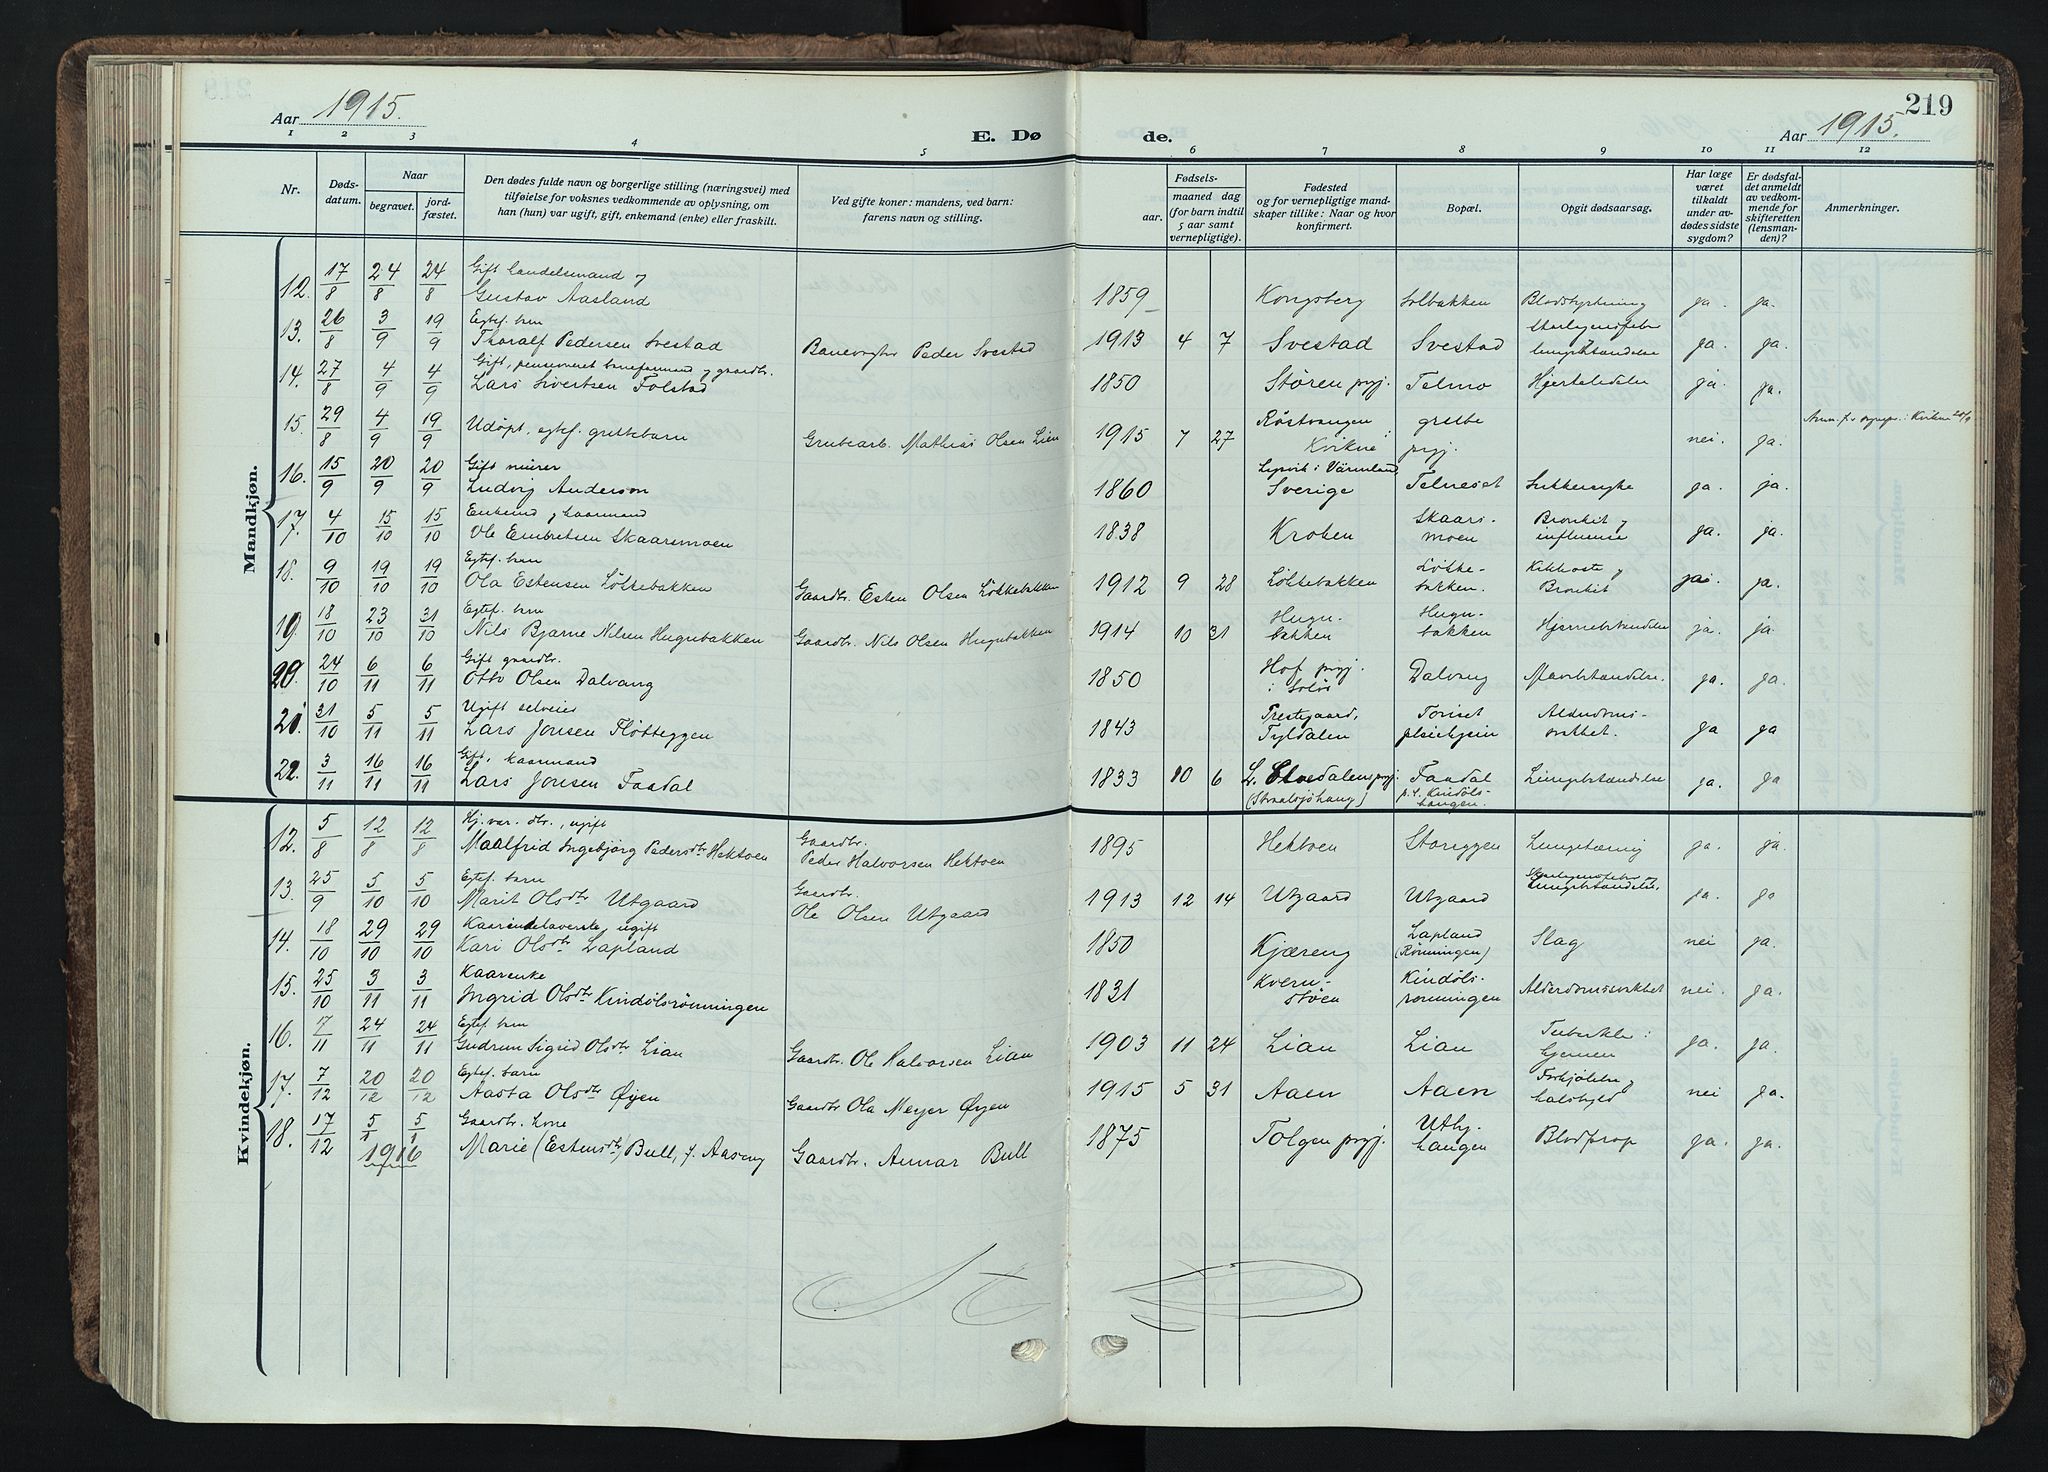 219
Aar 1915.
E. Døde.
Aar 1915.
1 2 3 4 5 6 7 8 9 10 11 12
Nr.
Dødsdatum.
Naar
begravet.
jordfæstet.
Den dødes fulde navn og borgerlige stilling (næringsvei) med
tilføielse for voksnes vedkommende av oplysning, om
han (hun) var ugift, gift, enkemand (enke) eller fraskilt.
Ved gifte koner: mandens, ved barn:
farens navn og stilling.
Fødsels-
aar.
maaned dag
(for barn indtil
5 aar samt
vernepligtige).
Fødested
og for vernepligtige mandskaper tillike: Naar og hvor
konfirmert.
Bopæl.
Opgit dødsaarsag.
Har læge
været
tilkaldt
under avdødes sidste
sygdom?
Er dødsfaldet anmeldt
av vedkommende for
skifteretten
(lensmanden)?
Anmerkninger.
Mandkjøn.
12. 17/8 24/8 24/8 Gift handelsmand
Gustav Aasland 1859 Kongsberg Solbakken Blodstyrtning ja. ja.
13. 26/8 3/9 19/9 Egtef. barn
Thoralf Pedersen Svestad Banevogter Peder Svestad 1913 4 7 Svestad Svestad Skarlagensfeber lungebetændelse ja. ja.
14. 27/8 4/9 4/9 Gift, pensioneret baneformand og gaardbr.
Lars Sivertsen Folstad 1850 Støren prgj. Telmo Hjertelidelse ja. ja.
15. 29/8 4/9 19/9 Udøpt, egtef. guttebarn Grubearb. Mathias Olsen Lien 1915 7 27 Røstvangen grube i Kvikne prgj. nei. ja. Kvikne
16. 15/9 20/9 20/9 Gift murer
Ludvig Anderson 1860 Lysvik i Värmland, Sverige Telneset Sukkersyke ja. ja.
17. 4/10 15/10 15/10 Enkemd. og kaarmand
Ole Embretsen Skaarsmoen 1838 Kroken Skaarsmoen Bronkit og influensa ja. ja.
18. 9/10 19/10 19/10 Egtef. barn
Ola Estensen Løkkebakken Gaardbr. Esten Olsen Løkkebakken 1912 9 28 Løkkebakken Løkkebakken. Kikhoste og Bronkit ja. ja.
19. 18/10 23/10 31/10 Egtef. barn
Nils Bjarne Nilsen Hugubakken Gaardbr. Nils Olsen Hugubakken 1914 10 31 Hugubakken Hugubakken Hjernebetændelse ja. ja
20. 24/10 6/11 6/11 Gift gaardbr.
Otto Olsen Dalvang 1850 Hof prgj. i Solør Dalvang Mavebetændelse. ja. ja.
21. 31/10 5/11 5/11 Ugift selveier
Lars Jonsen Fløtteggen 1843 Prestegaard, Tyldalen Toriset pleiehjem Alderdomssvakhet. ja ja
22. 3/11 16/11 16/11 Gift, kaarmand
Lars Jonsen Faadal 1833 10 6 L. Elvedalens prgj. Faadal p.t. Kindølshaugen. Lungebetændelse ja. ja
Kvindekjøn.
12. 5/8 12/8 12/8 Hj.var. dtr., ugift
Maalfrid Ingebjørg Pedersdtr Hektoen Gaardbr. Peder Halvorsen Hektoen 1895 Hektoen Storeggen Lungetæring ja. ja.
13. 25/9 5/10 5/10 Egtef. barn
Marit Olsdtr Utgaard Gaardbr. Ole Olsen Utgaard 1913 12 14 Utgaard Utgaard Skarlagensfeber og Lungebetændelse. ja. ja
14. 18/10 29/10 29/10 ugift
Kari Olsdtr Lapland 1850 Kjæreng Lapland (Rønningen) Slag nei ja.
15. 25/10 3/11 3/11 Kaarenke
Ingrid Olsdtr Kindølsrønningen 1831 Kvernstøen Kindølsrønningen Alderdomssvakhet nei. ja.
16. 7/11 24/11 24/11 Egtef. barn
Gudrun Sigrid Olsdtr Lian Gaardbr. Ole Halvorsen Lian 1903 11 24 Lian Lian Tuberkler i hjernen ja. ja.
17. 7/12 20/12 20/12 Egtef. barn
Aasta Olsdtr Øyen Gaardbr Ola Meyer Øyen 1915 5 31 Aaen Aaen Forkjølelse halsbyld nei ja.
18. 17/12 5/1 5/1 1916 Gaardbr. kone
Marie (Estensdtr) Bull, f. Aaseng Gaardbr. Annar Bull 1875 Tolgen prgj. Uthhaugen Blodprop ja. ja.